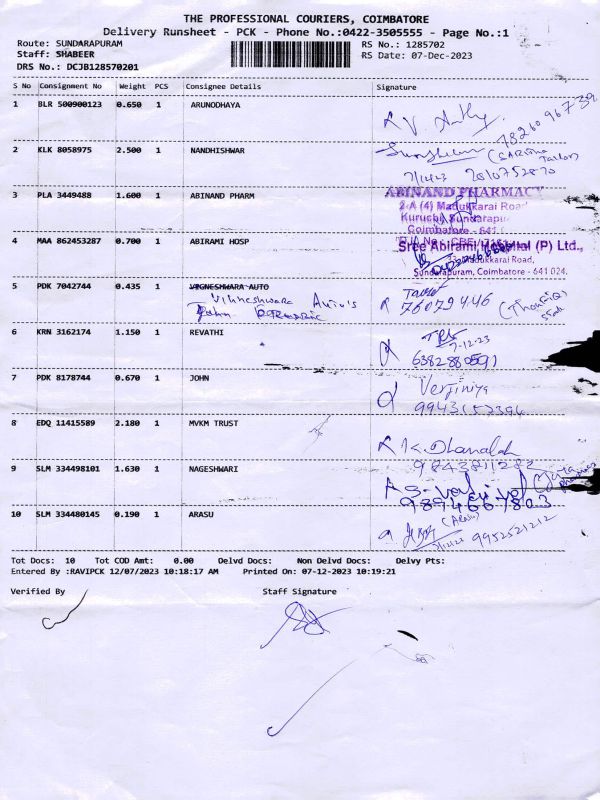 THE PROFESSIONAL COURIERS, COIMBATORE
Delivery Runsheet - PCK - Phone No.:0422-3505555 - Page No.:1
Route: SUNDARAPURAM RS No.: 1285702
Staff: SHABEER RS Date: 07-Dec-2023
DRS No.: DCJB128570201
S No Consignment No Weight PCS Consignee Details Signature
1 BLR 500900123 0.650 1 ARUNODHAYA
2 KLK 8058975 2.500 1 NANDHISHWAR
3 PLA 3449488 1.600 1 ABINAND PHARM
ABINAND PHARMACY
2-A (4) Madukkarai Road
Coimbatore - 641
4 MAA 862453287 0.700 1 ABIRAMI HOSP
Sree Abirami Hospital (P) Ltd.,
Madukkarai Road,
Sundarapuram, Coimbatore - 641 024.
5 PDK 7042744 0.435 1 VIGNESHWARA AUTO
Vigneshwara Auto's
6 KRN 3162174 1.150 1 REVATHI
7-12-23
6382880591
7 PDK 8178744 0.670 1 JOHN
Verjiniya
9943157394
8 EDQ 11415589 2.180 1 MVKM TRUST
K. Dhanalah
9843811282
9 SLM 334498101 1.630 1 NAGESHWARI
9894667803
10 SLM 334480145 0.190 1 ARASU
(Arasu)
9952521212
Tot Docs: 10 Tot COD Amt: 0.00 Delvd Docs: Non Delvd Docs: Delvy Pts:
Entered By :RAVIPCK 12/07/2023 10:18:17 AM Printed On: 07-12-2023 10:19:21
Verified By Staff Signature